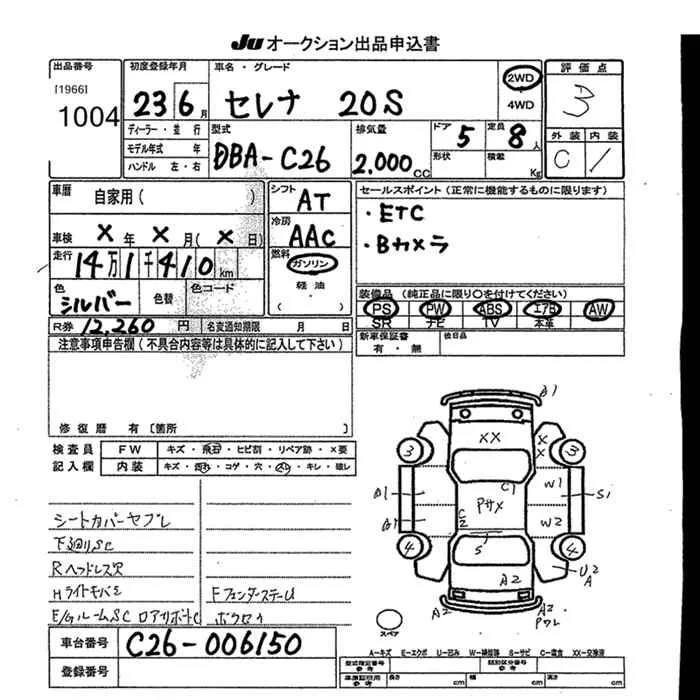 JU オークション出品申込書
出品番号 初度登録年月 車名・グレード 2WD 評価点
[1966] 1004 23 6月 セレナ 20S 4WD 3
ディーラー・並行 型式 排気量 ドア 5 定員 8人 外装 内装
モデル年式 年 DBA-C26 2.000CC 形状 積載 Kg C
ハンドル 左・右
車歴 自家用( ) シフト AT セールスポイント(正常に機能するものに限ります)
車検 X年 X月( X日) 冷房 AAC ・ETC
走行 14万1千410km 燃料 ガソリン ・Bカメラ
軽油・( )
色 シルバー 色替 色コード 装備品(純正品に限り○を付けてください)
PS PW ABS エアB AW
SR ナビ TV 本革
R券 12,260円 名変通知期限 月 日 新車保証書 有・無 後日品
注意事項申告欄(不具合内容等は具体的に記入して下さい)
修復歴 有〔箇所 〕
検査員 FW キズ・飛石・ヒビ割・リペア跡・×要
記入欄 内装 キズ・汚れ・コゲ・穴・スレ・キレ・破レ
シートカバーセブレ
下廻りSC
Rヘッドレス穴
Hライトモバミ
E/GルームSC
A1
XX
3
3
X
X
C1
W1
A1
S1
PサメX
C2
W2
S
4
4
A2
U2
A
A2
A2
スペア
車台番号 C26-006150
登録番号
A-キズ E-エクボ U-凹み W-補修等 S-サビ C-腐食 XX-交換済
型式指定番号 参考 類別区分番号 参考
車庫証明用 参考 長さ cm 幅 cm 高さ cm